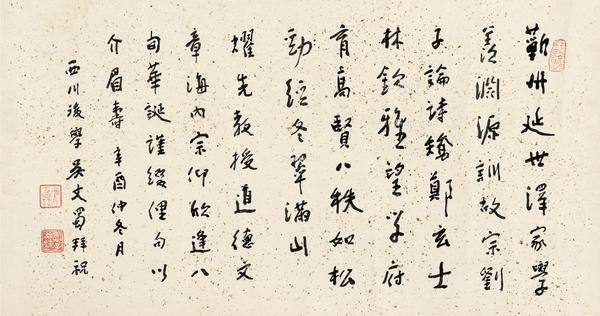 蘄州延世澤家學
羨淵源訓故宗劉
子論詩矯鄭玄士
林欽雅望學府
育高賢八秩如松
勁經冬翠滿山
燿先教授道德文
章海內宗仰欣逢八
旬華誕謹綴俚句以
介眉壽 辛酉仲冬月
西川後學吳丈蜀拜祝